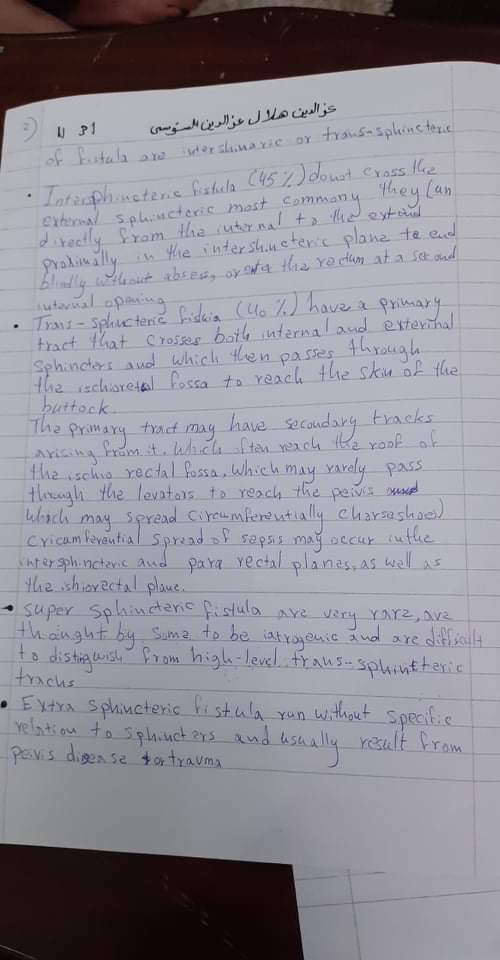 2) U 31 عز الدين هلال عز الدين السنوسي
of fistula are intershinaric or trans-sphincteric
• Intersphincteric fistula (45%) donot cross the
external sphincteric most commony they (an
directly from the internal to the extend
proximally in the intershincteric plane to end
blindly without abses, or the rectum at a second
internal opening
• Trans-sphincteric fistula (40%) have a primary
tract that crosses both internal and exterinal
Sphincters and which then passes through
the ischioretal fossa to reach the skin of the
buttock.
The primary tract may have secoudary tracks
arising from it. Which often reach the roof of
the ischio rectal fossa, which may rarely pass
through the levators to reach the peivis
which may spread circumferentially (horseshoe)
cricumferential spread of sepsis may occur inthe
intersphincteric and para rectal planes, as well as
the ishiorectal plane.
• super sphincteric fistula are very rare, are
thought by some to be iatrogenic and are difficult
to distigwish from high-level trans-sphincteric
tracks
• Extra sphincteric fistula run without specific
relation to sphincters and usually result from
peivis disease or trauma